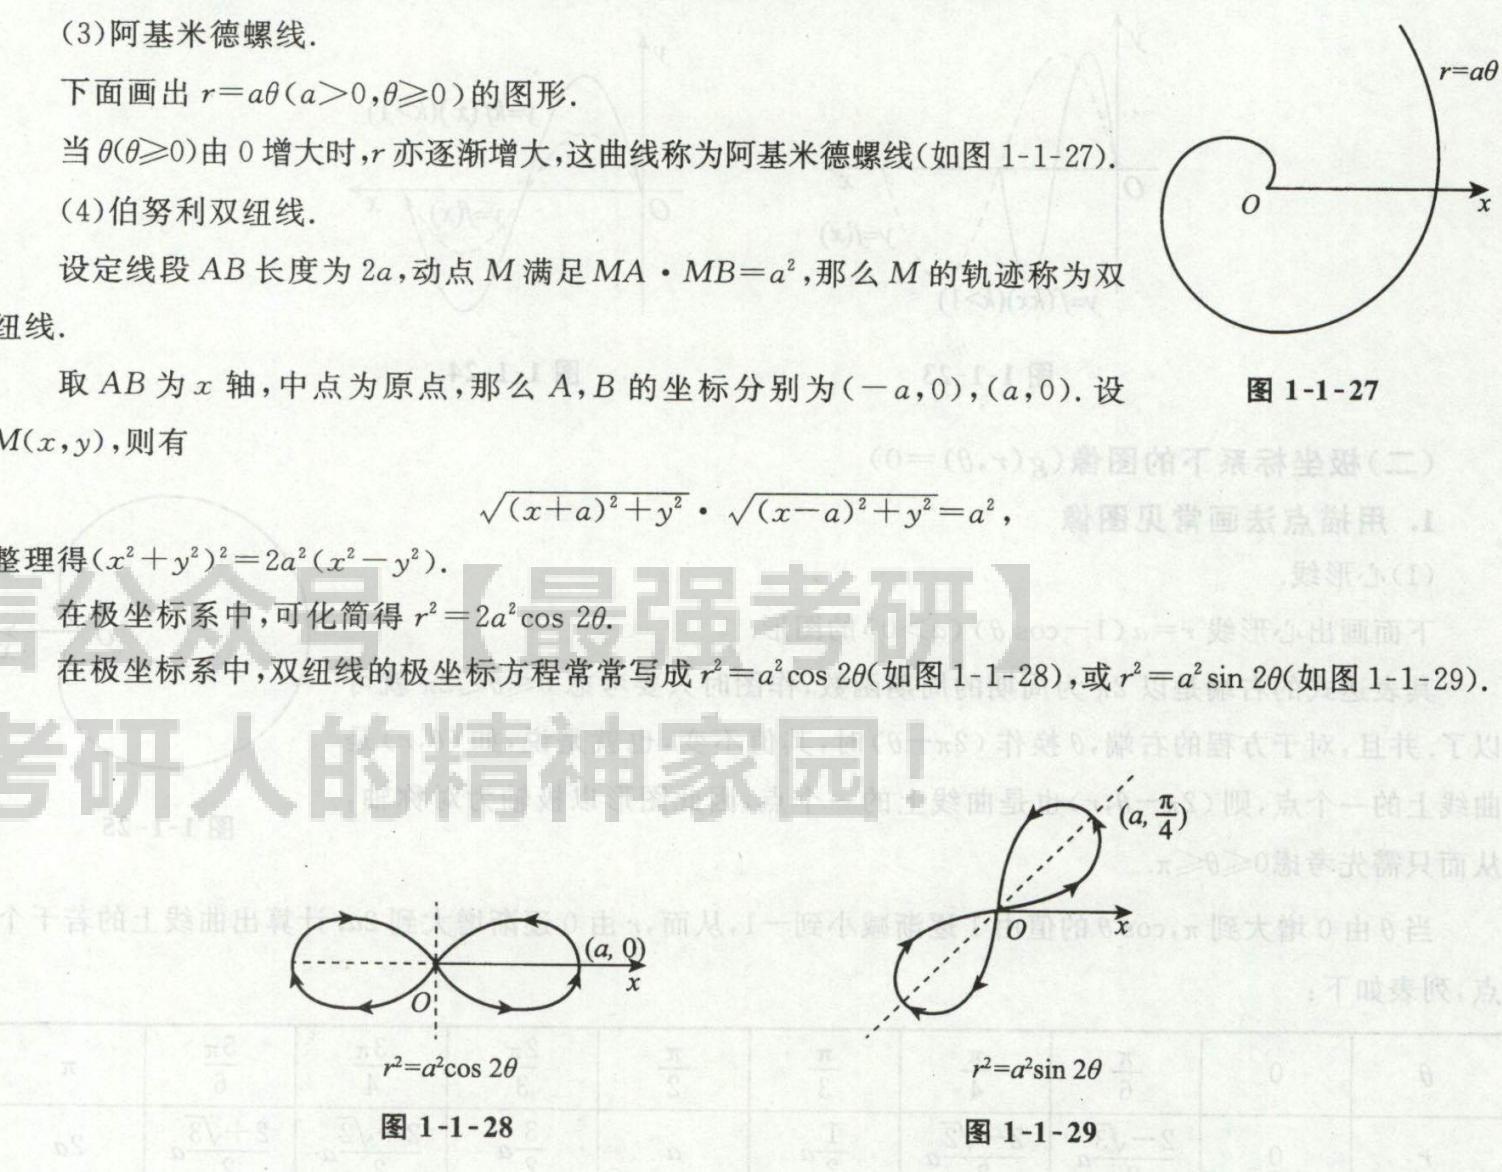 (3)阿基米德螺线.
下面画出 r=aθ(a>0,θ≥0)的图形.
当 θ(θ≥0)由 0 增大时,r 亦逐渐增大,这曲线称为阿基米德螺线(如图 1-1-27).
(4)伯努利双纽线.
设定线段 AB 长度为 2a,动点 M 满足 MA·MB=a²,那么 M 的轨迹称为双
纽线.
取 AB 为 x 轴,中点为原点,那么 A,B 的坐标分别为(-a,0),(a,0).设
M(x,y),则有
√((x+a)²+y²)·√((x-a)²+y²)=a²,
整理得(x²+y²)²=2a²(x²-y²).
在极坐标系中,可化简得 r²=2a²cos 2θ.
在极坐标系中,双纽线的极坐标方程常常写成 r²=a²cos 2θ(如图 1-1-28),或 r²=a²sin 2θ(如图 1-1-29).
r=aθ
O
x
图 1-1-27
信公众号【最强考研】
考研人的精神家园!
(a, 0)
O
x
r²=a²cos 2θ
图 1-1-28
(a, π/4)
O
x
r²=a²sin 2θ
图 1-1-29